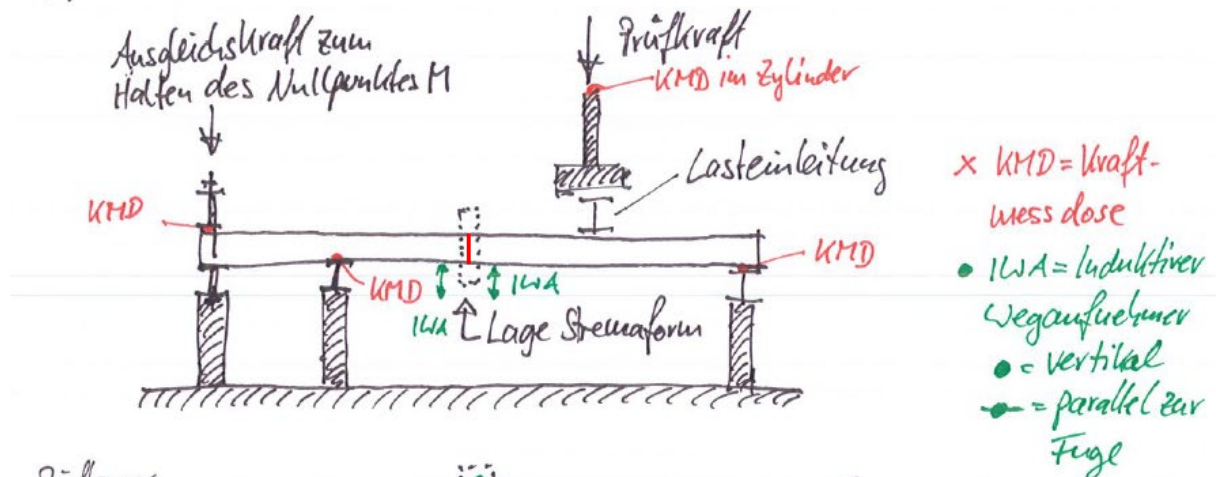 Ausgleichskraft zum
Halten des Nullpunktes M
Prüfkraft
KMD im Zylinder
Lasteinleitung
KMD
KMD
KMD
IWA
IWA
Lage Stremaform
x KMD = Kraft-
mess dose
IWA = Induktiver
Wegaufnehmer
= vertikal
= parallel zur
Fuge